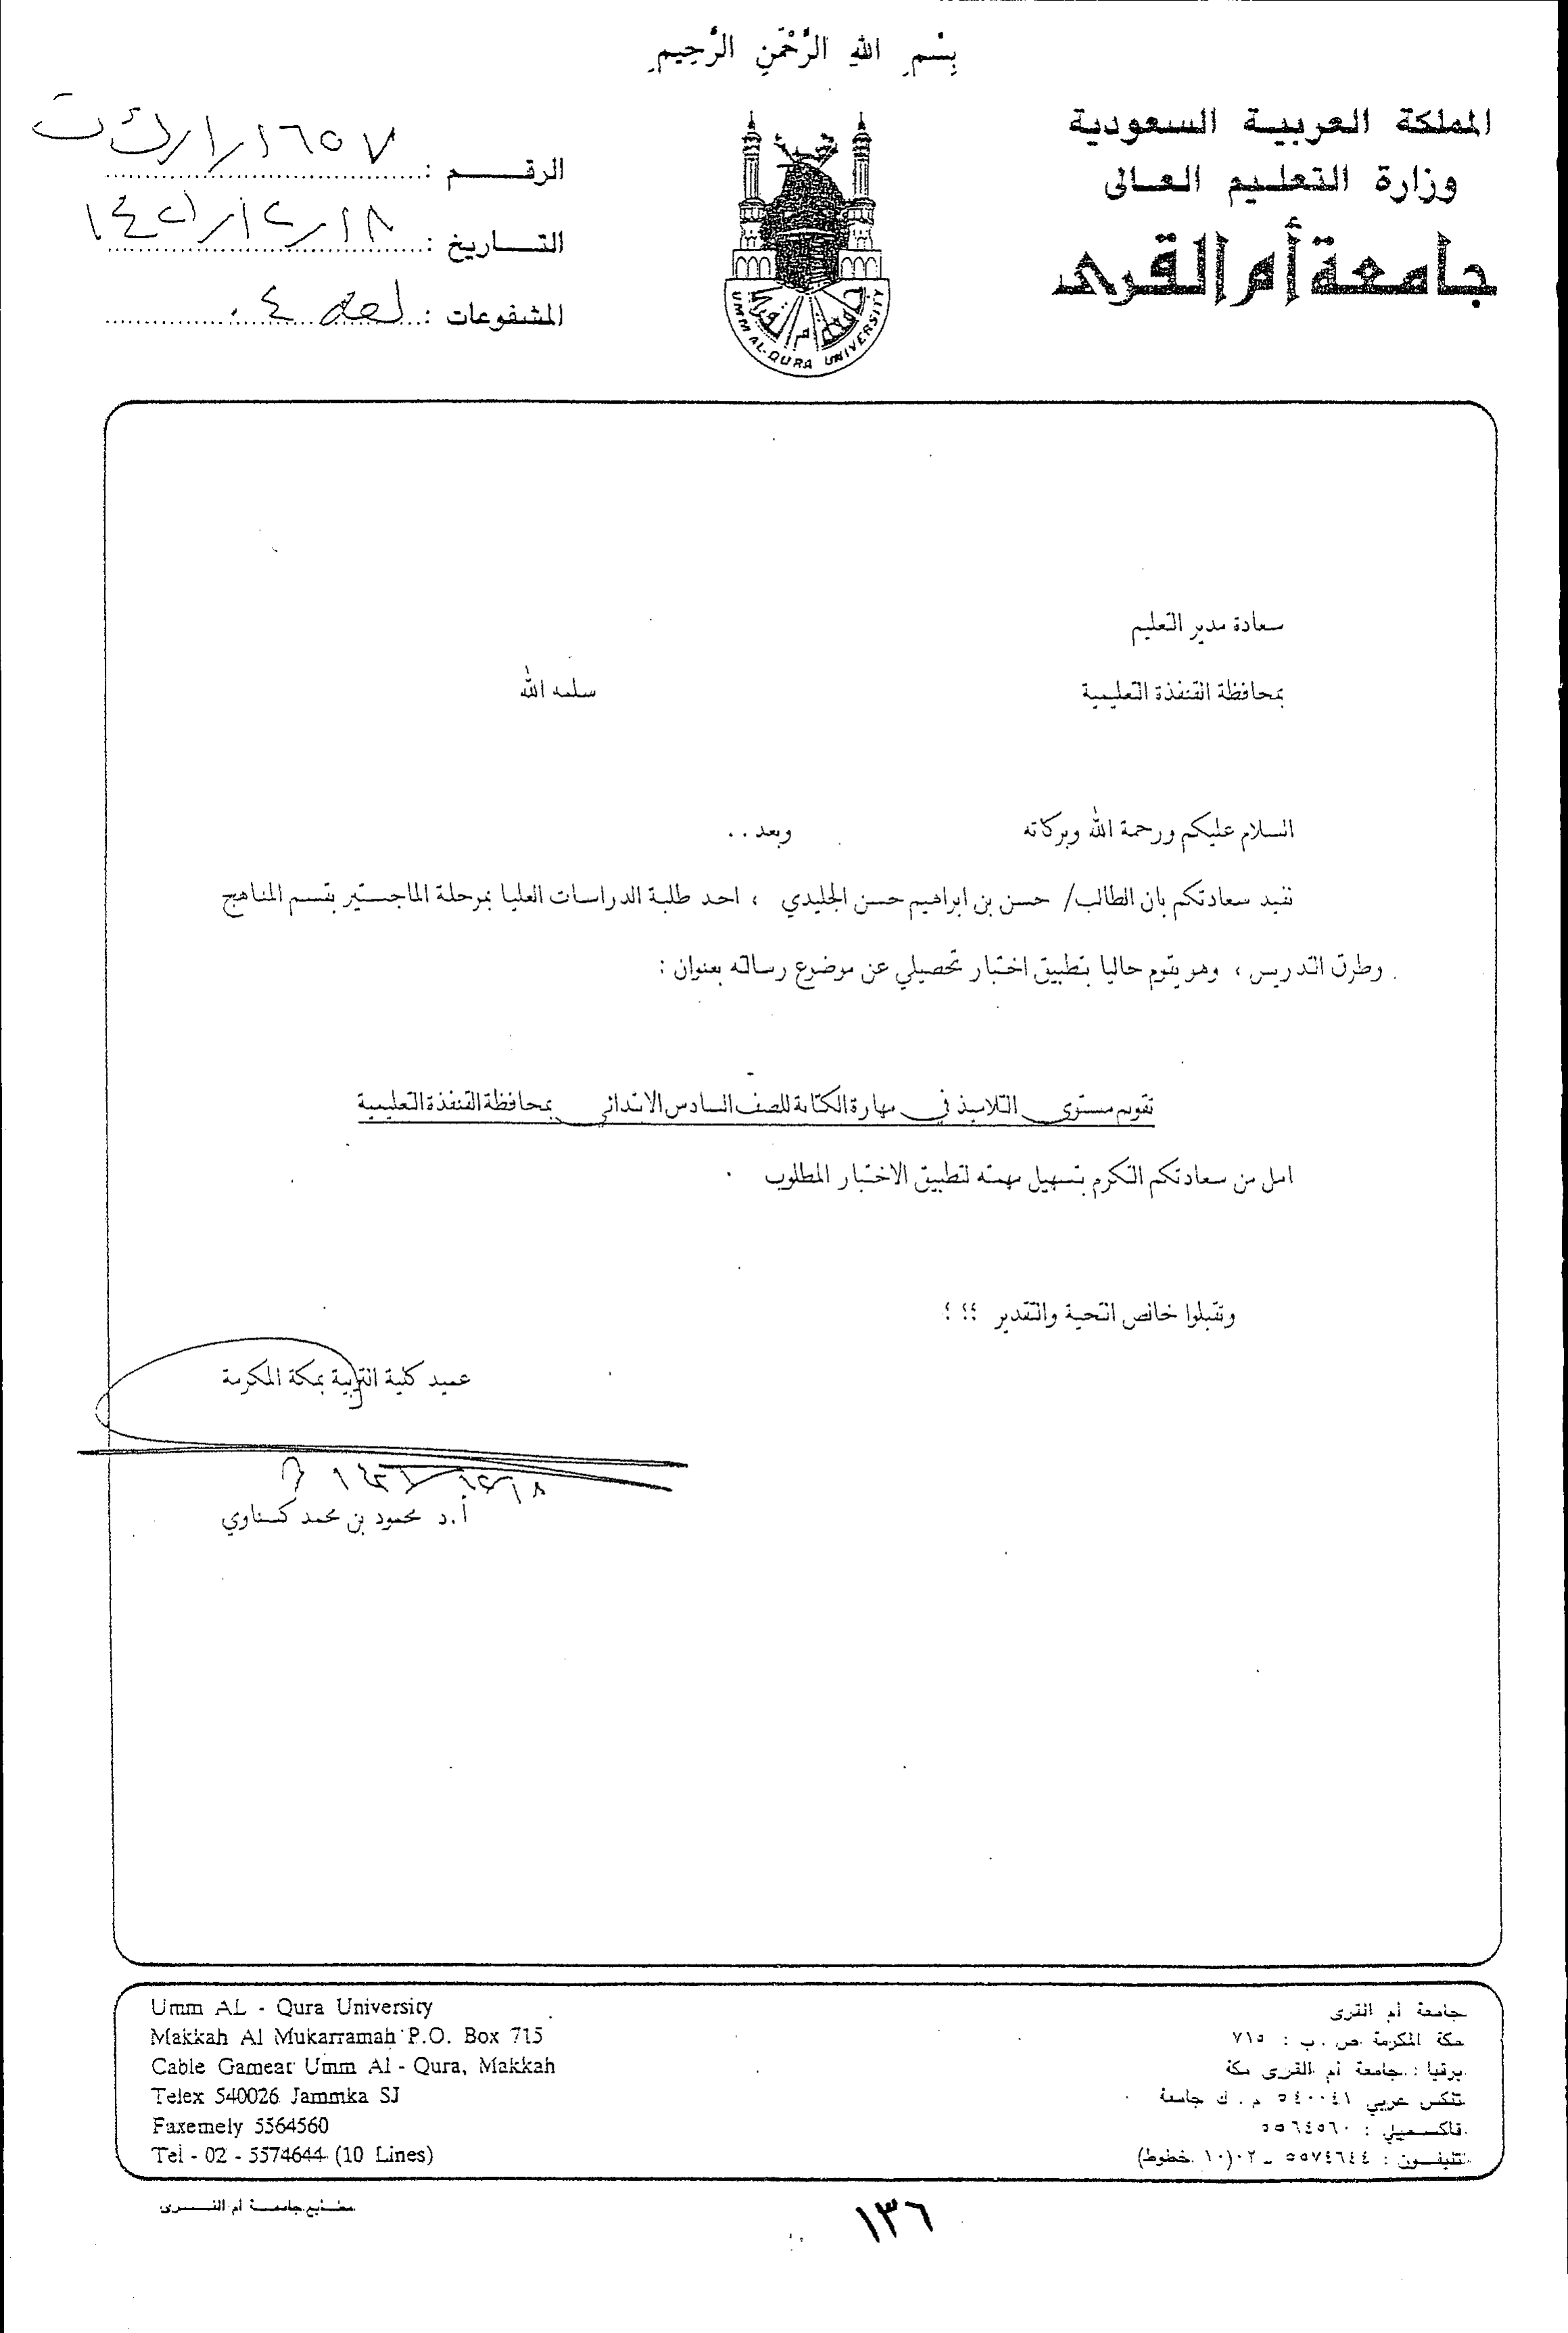 بِسْمِ اللهِ الرَّحْمَنِ الرَّحِيمِ
المملكة العربية السعودية
وزارة التعليم العالى
جامعة أم القرى
الرقـــم :
التـــاريخ : ١٨/١٢/
المشفوعات :
UMM AL-QURA UNIVERSITY
سعادة مدير التعليم
بمحافظة القنفذة التعليمية سلمه الله
السلام عليكم ورحمة الله وبركاته وبعد . .
نفيد سعادتكم بان الطالب/ حسن بن ابراهيم حسن الجليدي ، احد طلبة الدراسات العليا بمرحلة الماجستير بقسم المناهج
وطرق التدريس ، وهو يقوم حاليا بتطبيق اختبار تحصيلي عن موضوع رسالته بعنوان :
تقويم مستوى التلاميذ في مهارة الكتابة للصف السادس الابتدائي بمحافظة القنفذة التعليمية
امل من سعادتكم التكرم بتسهيل مهمته لتطبيق الاختبار المطلوب .
وتقبلوا خالص التحية والتقدير ؛؛ ؛
عميد كلية التربية بمكة المكرمة
أ.د محمود بن محمد كسناوي
Umm AL - Qura University
Makkah Al Mukarramah P.O. Box 715
Cable Gamear Umm Al - Qura, Makkah
Telex 540026 Jammka SJ
Faxemely 5564560
Tel - 02 - 5574644 (10 Lines)
جامعة أم القرى
مكة المكرمة ص . ب : ٧١٥
برقيا : جامعة أم القرى مكة
تلكس عربي ٥٤٠٠٤١ م . ك جامعة
فاكسميلي : ٥٥٦٤٥٦٠
تليفون : ٥٥٧٤٦٤٤ - ٠٢ (١٠ خطوط)
مطابع جامعة أم القرى
١٣٦